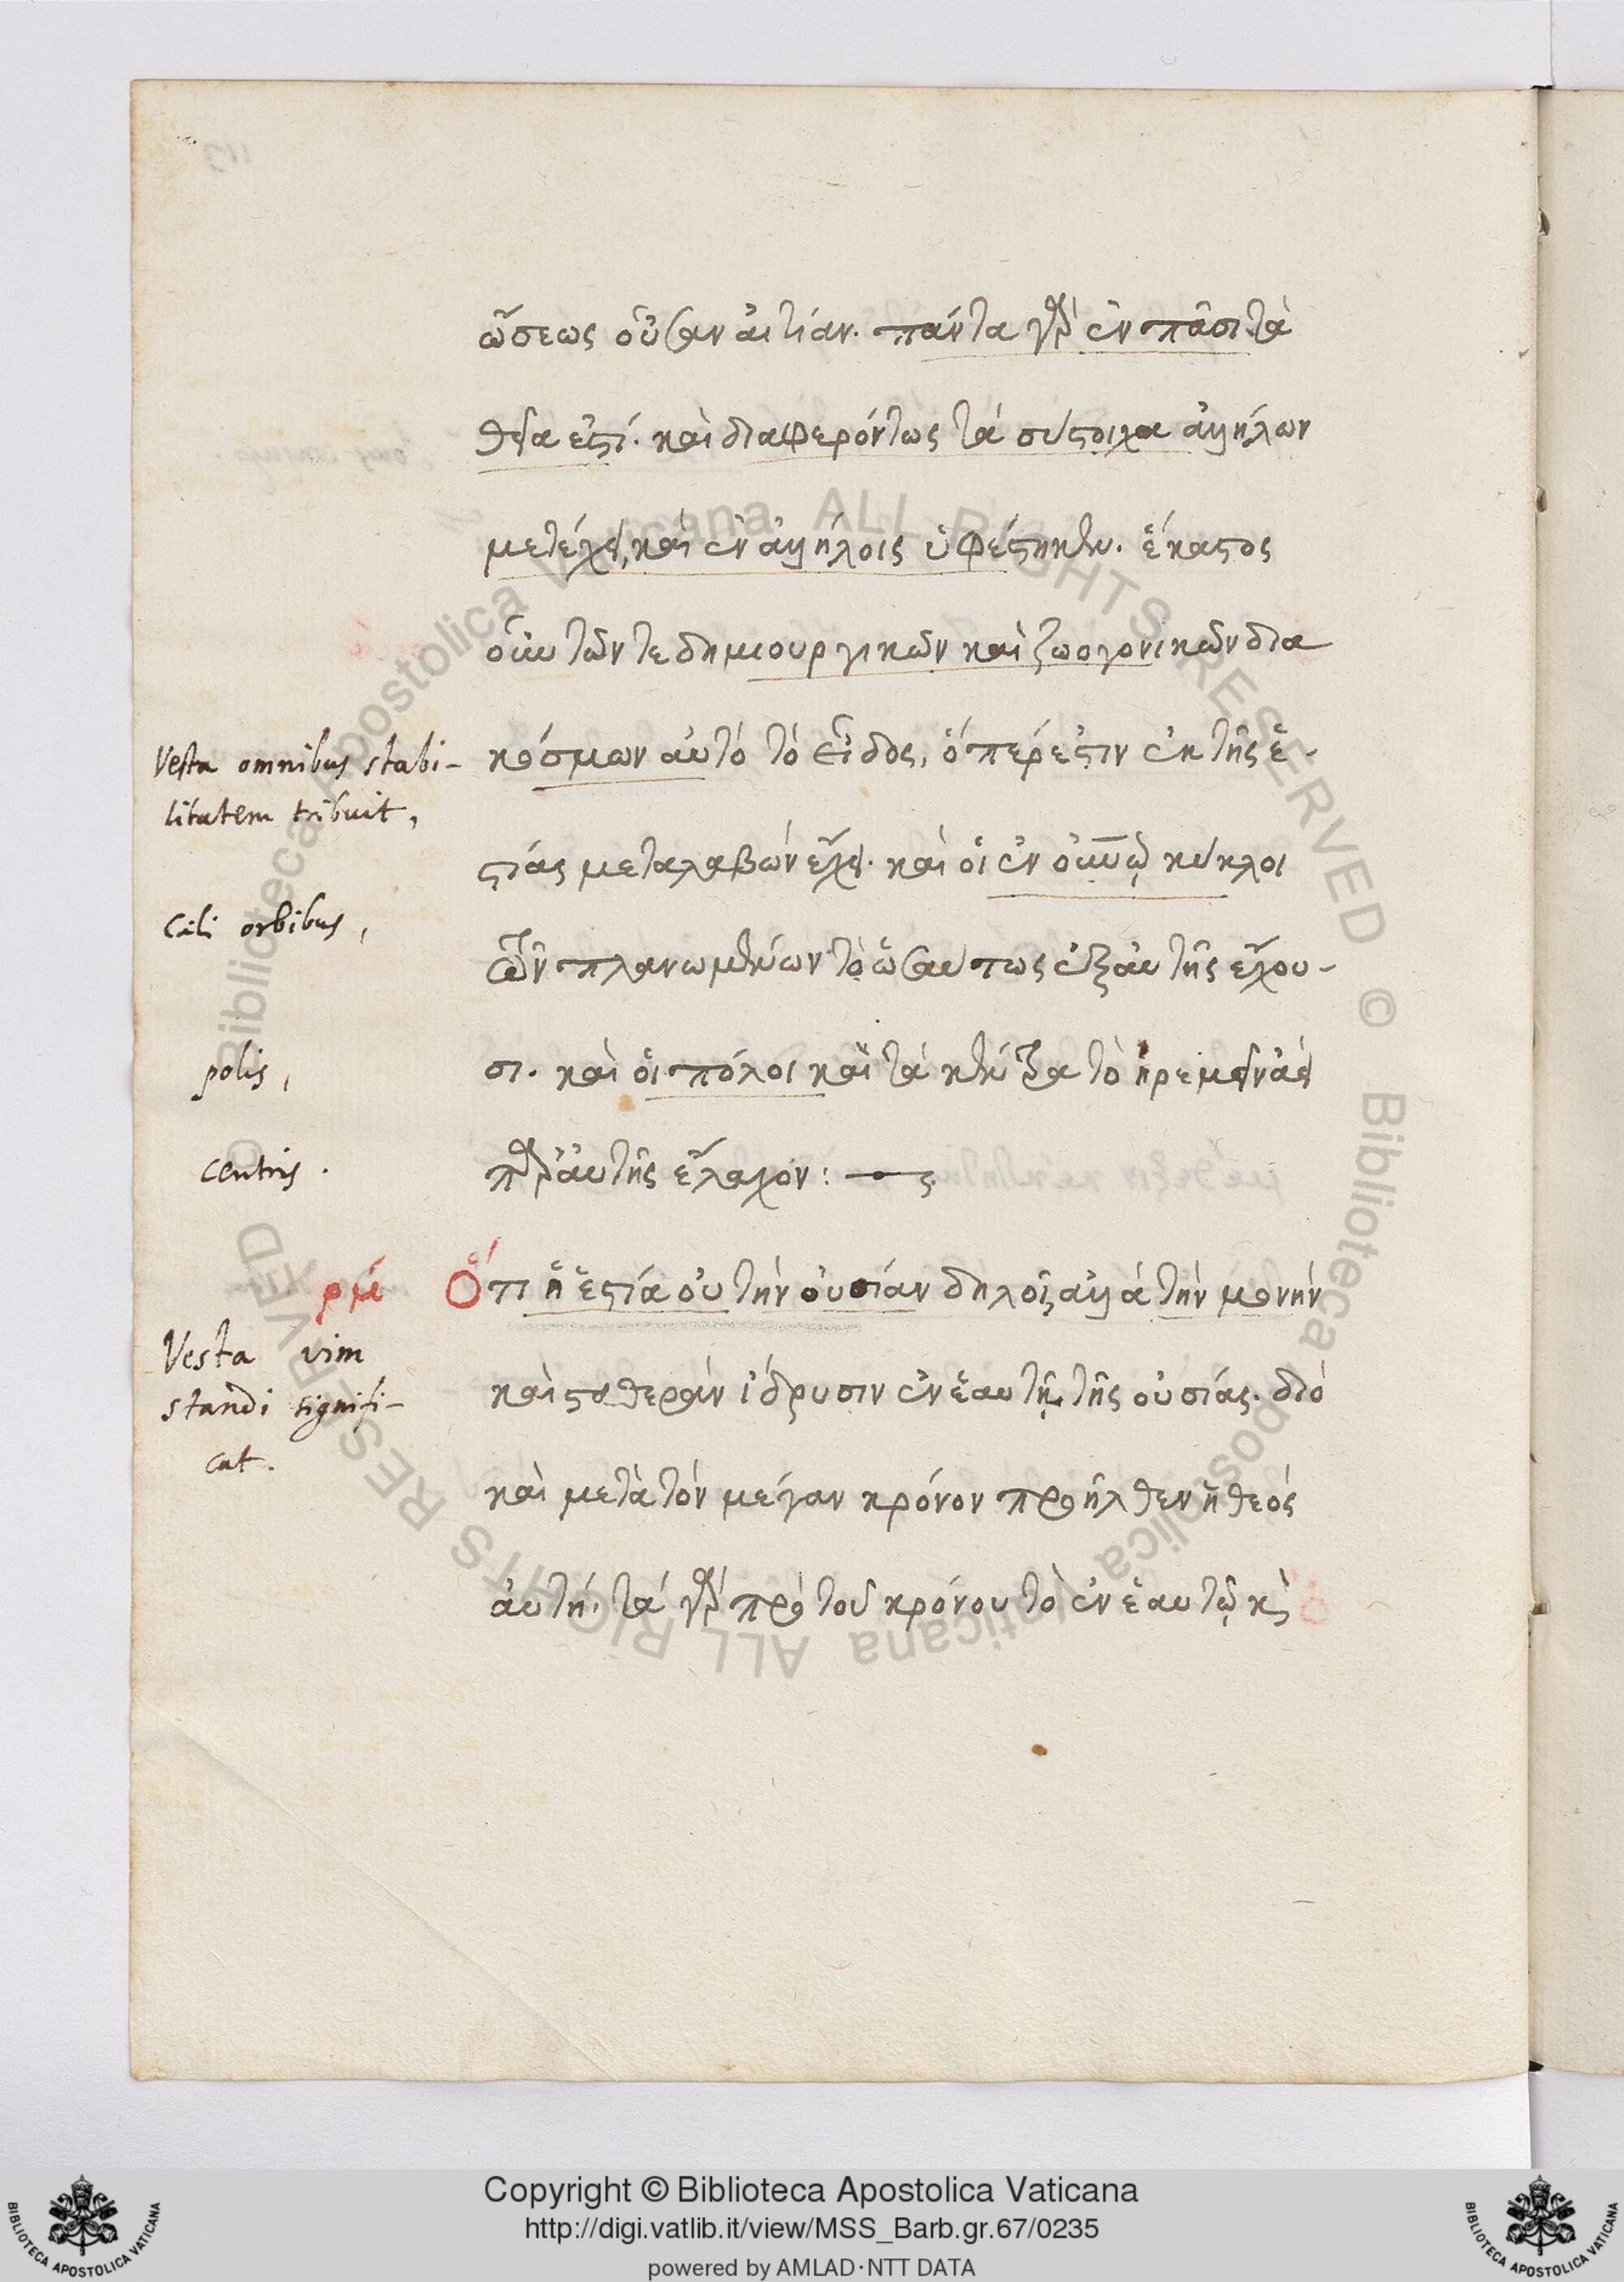 ώσεως οὖσαν αἰτίαν. πάντα γὰρ ἐν πᾶσι τὰ
θεῖα ἐστί. καὶ διαφερόντως τὰ σύστοιχα ἀλλήλων
μετέχει, καὶ ἐν ἀλλήλοις ὑφέστηκεν. ἕκαστος
οὖν τῶν τε δημιουργικῶν καὶ ζωογονικῶν δια
Vesta omnibus stabi-
litatem tribuit,
κόσμων αὐτὸ τὸ εἶδος, ὅπερ ἐστιν ἐκ τῆς ἑ-
στίας μεταλαβών ἔχει. καὶ οἱ ἐν οὐνῷ κύκλοι
Cęli orbibus,
τῶν πλανωμένων τὸ ὡσαύτως ἐξ αὐτῆς ἔχου-
σι. καὶ οἱ πόλοι καὶ τὰ κέντρα τὸ ἠρεμεῖν ἀεὶ
polis,
παρ' αὐτῆς ἔλαχον: —
centris.
ρμ
Ὅτι ἡ ἑστία οὐ τὴν οὐσίαν δηλοῖ, ἀλλὰ τὴν μονὴν
Vesta vim
standi signifi-
cat.
καὶ σταθερὰν ἵδρυσιν ἐν ἑαυτῇ τῆς οὐσίας. διό
καὶ μετὰ τὸν μέγαν κρόνον προῆλθεν ἡ θεός
αὐτή. τὰ γὰρ πρὸ τοῦ κρόνου τὸ ἐν ἑαυτῷ κὶ
Copyright © Biblioteca Apostolica Vaticana
http://digi.vatlib.it/view/MSS_Barb.gr.67/0235
powered by AMLAD·NTT DATA
BIBLIOTECA APOSTOLICA VATICANA
BIBLIOTECA APOSTOLICA VATICANA
© Biblioteca Apostolica Vaticana ALL RIGHTS RESERVED © Biblioteca Apostolica Vaticana ALL RIGHTS RESERVED